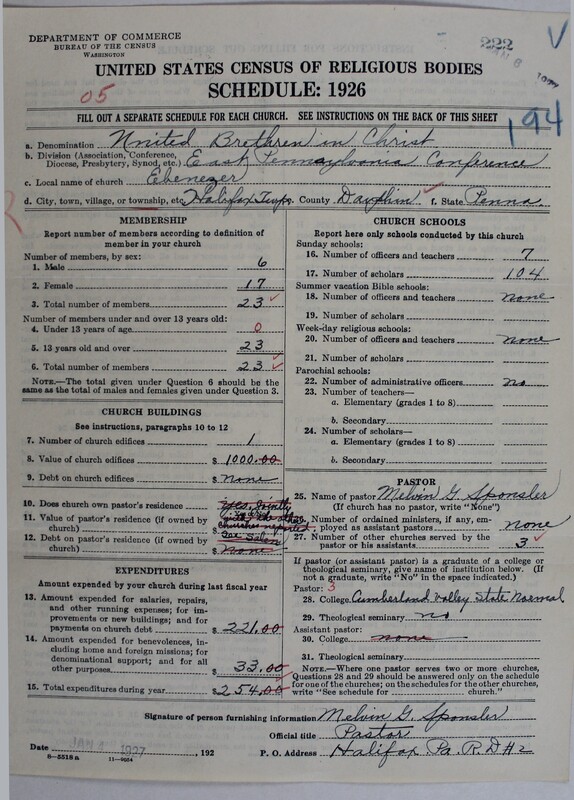 DEPARTMENT OF COMMERCE
BUREAU OF THE CENSUS
WASHINGTON
222
V
UNITED STATES CENSUS OF RELIGIOUS BODIES
SCHEDULE: 1926
05
FILL OUT A SEPARATE SCHEDULE FOR EACH CHURCH. SEE INSTRUCTIONS ON THE BACK OF THIS SHEET
194
a. Denomination United Brethren in Christ
b. Division (Association, Conference, Diocese, Presbytery, Synod, etc.) East Pennsylvania Conference
c. Local name of church Ebenezer
d. City, town, village, or township, etc. Halifax Twp. County Dauphin f. State Penna.
MEMBERSHIP
Report number of members according to definition of
member in your church
Number of members, by sex:
1. Male 6
2. Female 17
3. Total number of members 23
Number of members under and over 13 years old:
4. Under 13 years of age 0
5. 13 years old and over 23
6. Total number of members 23
NOTE.—The total given under Question 6 should be the
same as the total of males and females given under Question 3.
CHURCH BUILDINGS
See instructions, paragraphs 10 to 12
7. Number of church edifices 1
8. Value of church edifices $ 1000.00
9. Debt on church edifices $ None
10. Does church own pastor's residence
11. Value of pastor's residence (if owned by
church)
12. Debt on pastor's residence (if owned by
church) $ None
EXPENDITURES
Amount expended by your church during last fiscal year
13. Amount expended for salaries, repairs,
and other running expenses; for im-
provements or new buildings; and for
payments on church debt $ 221.00
14. Amount expended for benevolences,
including home and foreign missions; for
denominational support; and for all
other purposes $ 33.00
15. Total expenditures during year $ 254.00
CHURCH SCHOOLS
Report here only schools conducted by this church
Sunday schools:
16. Number of officers and teachers 7
17. Number of scholars 104
Summer vacation Bible schools:
18. Number of officers and teachers none
19. Number of scholars
Week-day religious schools:
20. Number of officers and teachers none
21. Number of scholars
Parochial schools:
22. Number of administrative officers no
23. Number of teachers—
a. Elementary (grades 1 to 8)
b. Secondary
24. Number of scholars—
a. Elementary (grades 1 to 8)
b. Secondary
PASTOR
25. Name of pastor Melvin G. Sponsler
(If church has no pastor, write "None")
26. Number of ordained ministers, if any, em-
ployed as assistant pastors none
27. Number of other churches served by the
pastor or his assistants 3
If pastor (or assistant pastor) is a graduate of a college or
theological seminary, give name of institution below. (If
not a graduate, write "No" in the space indicated.)
Pastor: 3
28. College Cumberland Valley State Normal
29. Theological seminary no
Assistant pastor:
30. College none
31. Theological seminary
NOTE.—Where one pastor serves two or more churches,
Questions 28 and 29 should be answered only on the schedule
for one of the churches; on the schedules for the other churches,
write "See schedule for church."
Signature of person furnishing information Melvin G. Sponsler
Official title Pastor
Date JAN 1927 , 192 P. O. Address Halifax Pa. R.D #2
8—5518a 11—9654